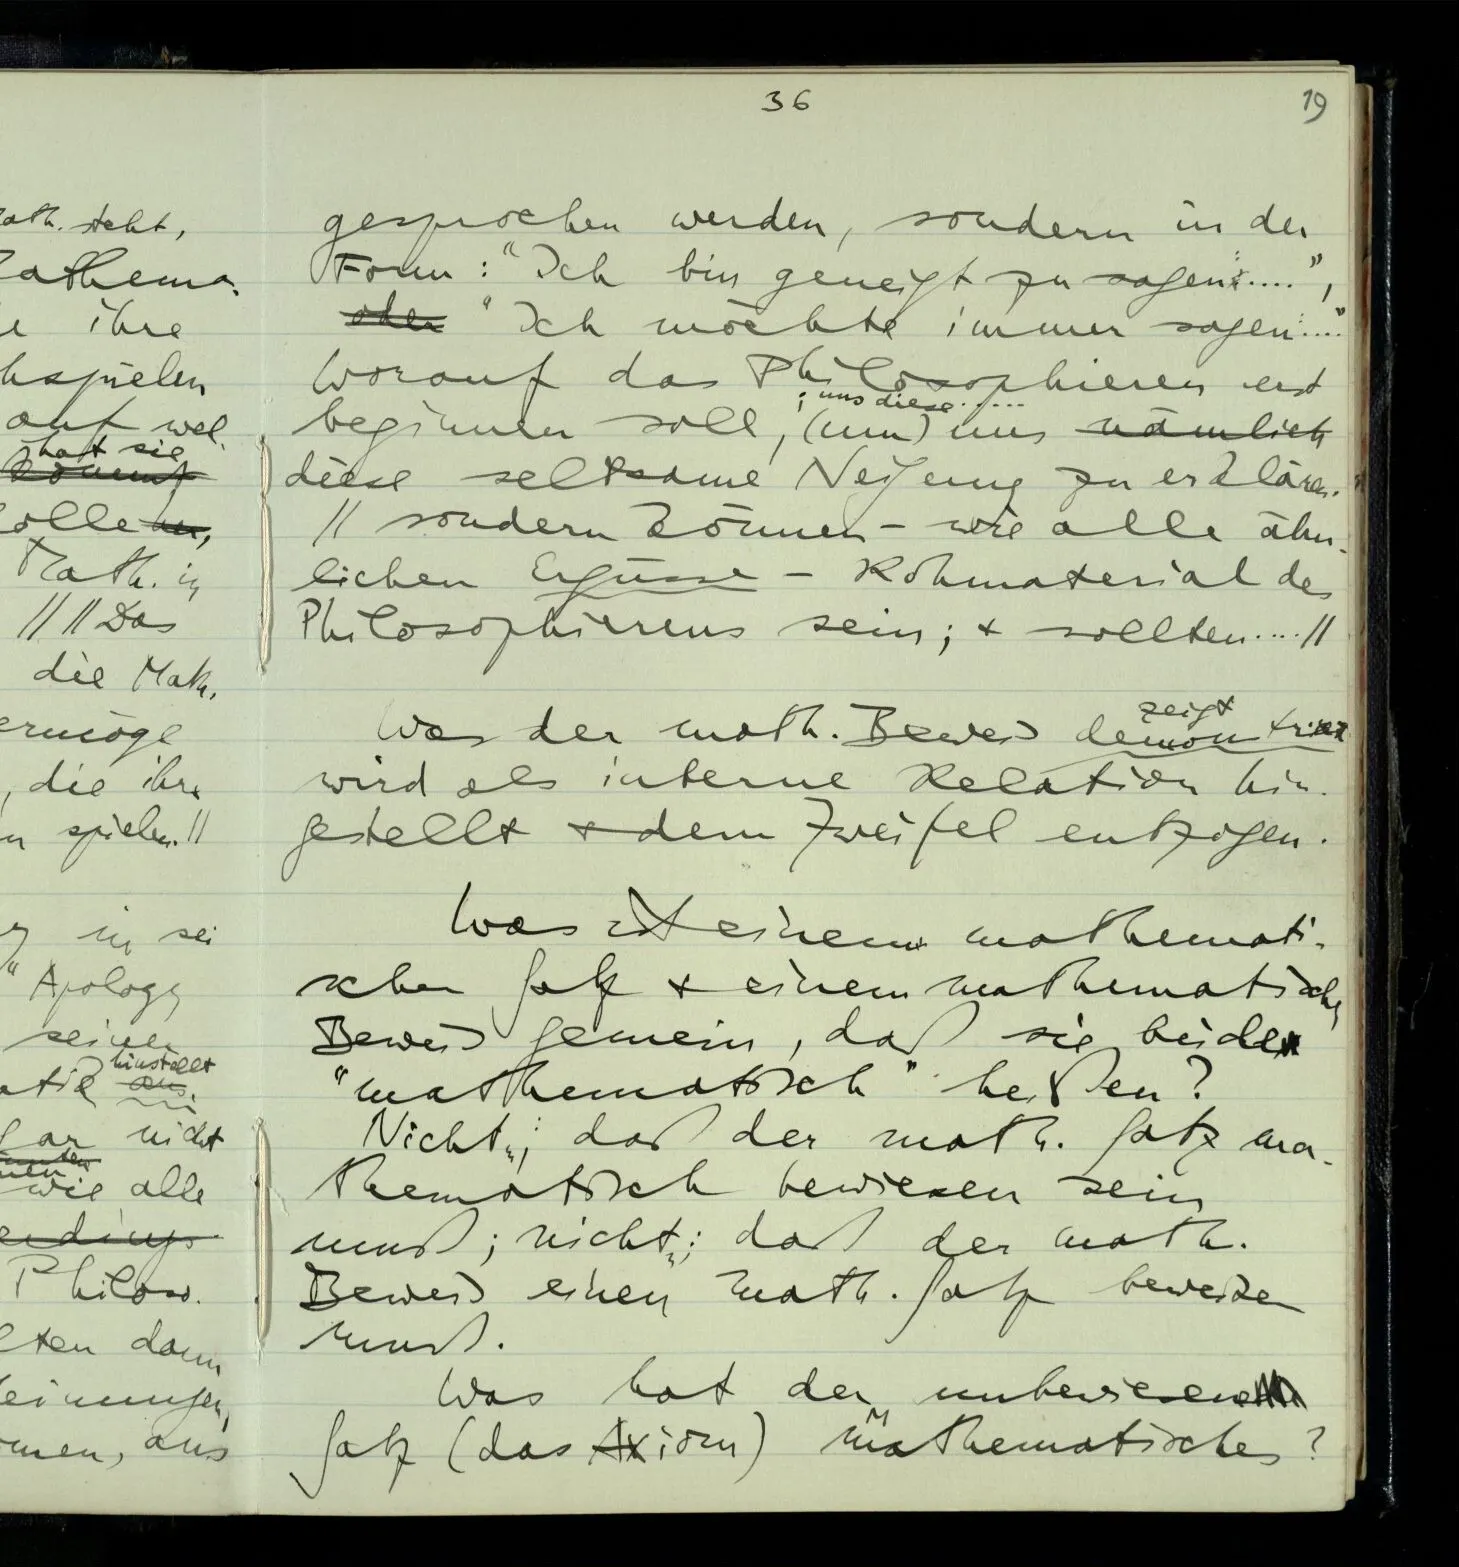 36
19
gesprochen werden, sondern in der
Form: "Ich bin geneigt zu sagen:....",
oder "Ich möchte immer sagen:...."
worauf das Philosophieren erst
; uns diese......
beginnen soll, (um) uns nämlich
diese seltsame Neigung zu erklären.
// sondern können – wie alle ähn-
lichen Ergüsse – Rohmaterial des
Philosophierens sein; + sollten....//
zeigt
Was der math. Beweis demonstriert
wird als interne Relation hin-
gestellt + dem Zweifel entzogen.
Was ist einem mathemati-
schen Satz + einem mathematischen
Beweis gemein, daß sie beide
"mathematisch" heißen?
Nicht, daß der math. Satz ma-
thematisch bewiesen sein
muß; nicht, daß der math.
Beweis einen math. Satz beweisen
muß.
Was hat der unbewiesene
Satz (das Axiom) mathematisches?
ath. steht,
athema-
ihre
hspielen
auf wel-
hat sie
kommt
ollen,
Math. in
// // Das
die Math.
ermöge
, die ihre
n spielen.//
in sei
" Apology
seiner
hinstellt
aus.
gar nicht
wie alle
erdings
Philoso.
lten dann
einungen,
omen, aus